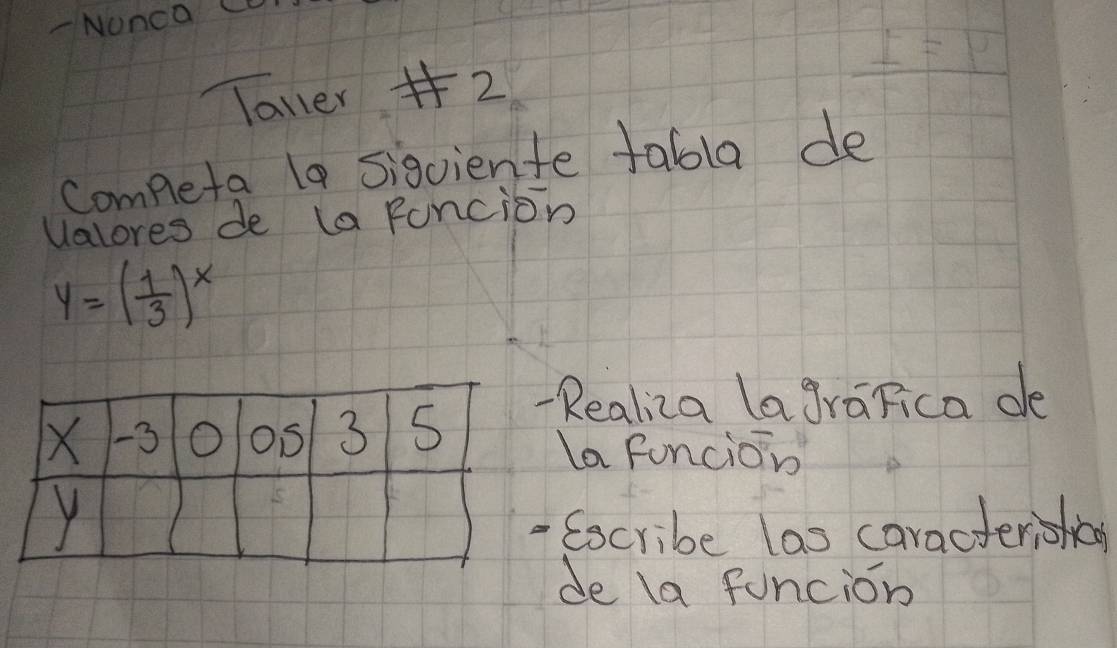 -Nunca
Taller #2
Completa la siguiente tabla de
valores de la función
y = (1/3)^x
X -3 0 0,5 3 5
y
-Realiza la gráfica de
la función
-Escribe las características
de la función